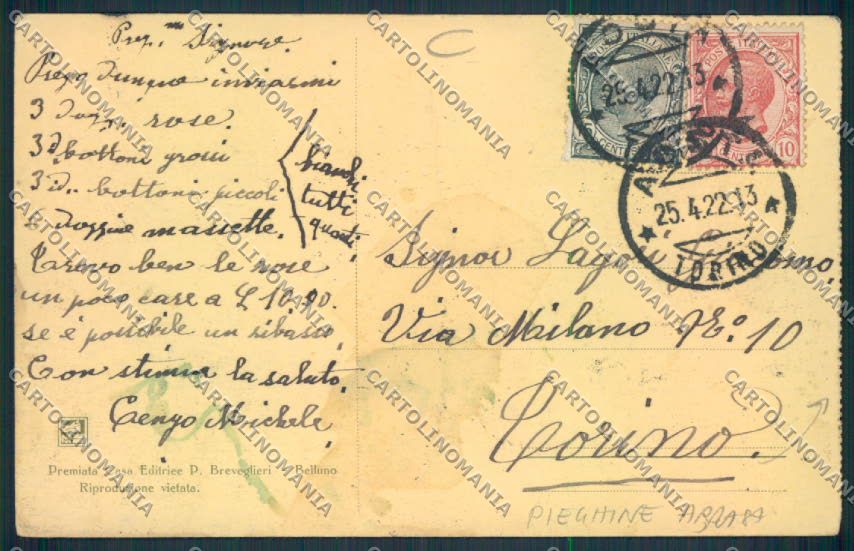 Preg.mo Signore.
Prego dunque inviarmi
3 dozz. rose.
3 d. bottoni grossi
3 d. bottoni piccoli
dozzine massette.
bianchi
tutti
questi
Trovo ben le rose
un poco care a £ 10.90.
se è possibile un ribasso
Con stima la saluto.
Michele
Premiata Casa Editrice P. Breveglieri - Belluno
Riproduzione vietata.
10
25.4.22.13
25.4.22.13
TORINO
Signor Lago
Via Milano N.° 10
Torino.
PIEGHINE
CARTOLINOMANIA